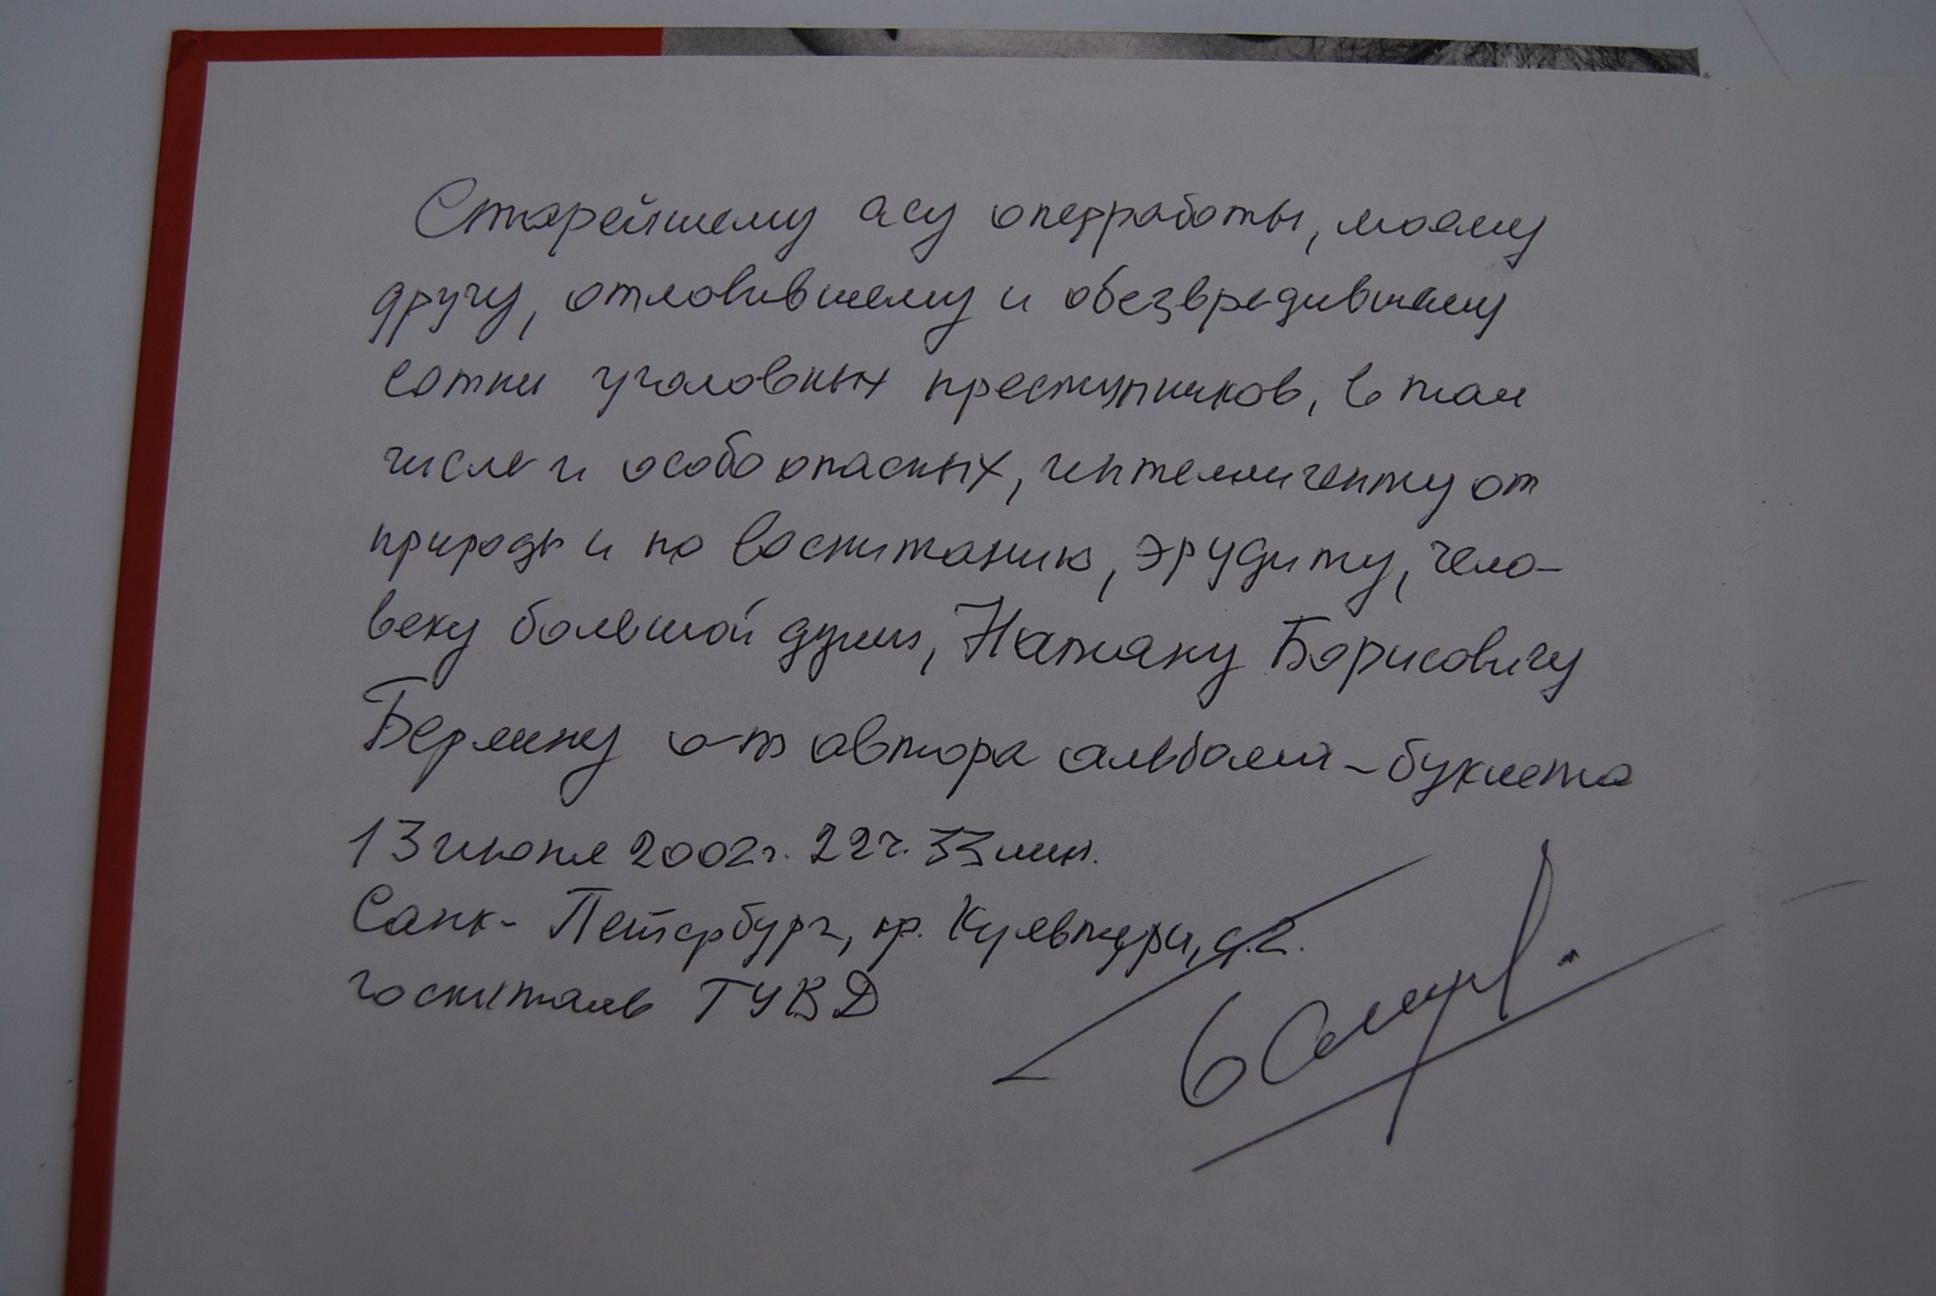 Старейшему асу оперработы, моему
другу, отловившему и обезвредившему
сотни уголовных преступников, в том
числе и особо опасных, интеллигенту от
природы и по воспитанию, эрудиту, чело-
веку большой души, Натану Борисовичу
Берлину от автора альбома-буклета
13 июня 2002г. 22ч. 33мин.
Санк-Петербург, пр. Культуры, д.2.
госпиталь ГУВД